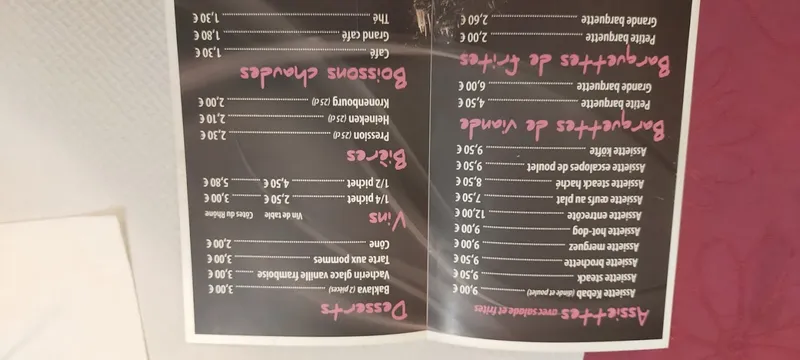 Assiettes avec salade et frites
Assiette Kebab (dinde et poulet) 9,00 €
Assiette steack 9,50 €
Assiette brochette 9,50 €
Assiette merguez 9,00 €
Assiette hot-dog 9,00 €
Assiette entrecôte 12,00 €
Assiette œufs au plat 7,50 €
Assiette steack haché 8,50 €
Assiette escalopes de poulet 9,50 €
Assiette köfte 9,50 €
Barquettes de viande
Petite barquette 4,50 €
Grande barquette 6,00 €
Barquettes de frites
Petite barquette 2,00 €
Grande barquette 2,60 €
Desserts
Baklava (2 pièces) 3,00 €
Vacherin glace vanille framboise 3,00 €
Tarte aux pommes 3,00 €
Cône 2,00 €
Vins Vin de table Côtes du Rhône
1/4 pichet 2,50 € 3,00 €
1/2 pichet 4,50 € 5,80 €
Bières
Pression (25cl) 2,30 €
Heineken (25cl) 2,10 €
Kronenbourg (25cl) 2,00 €
Boissons chaudes
Café 1,30 €
Grand café 1,80 €
Thé 1,30 €